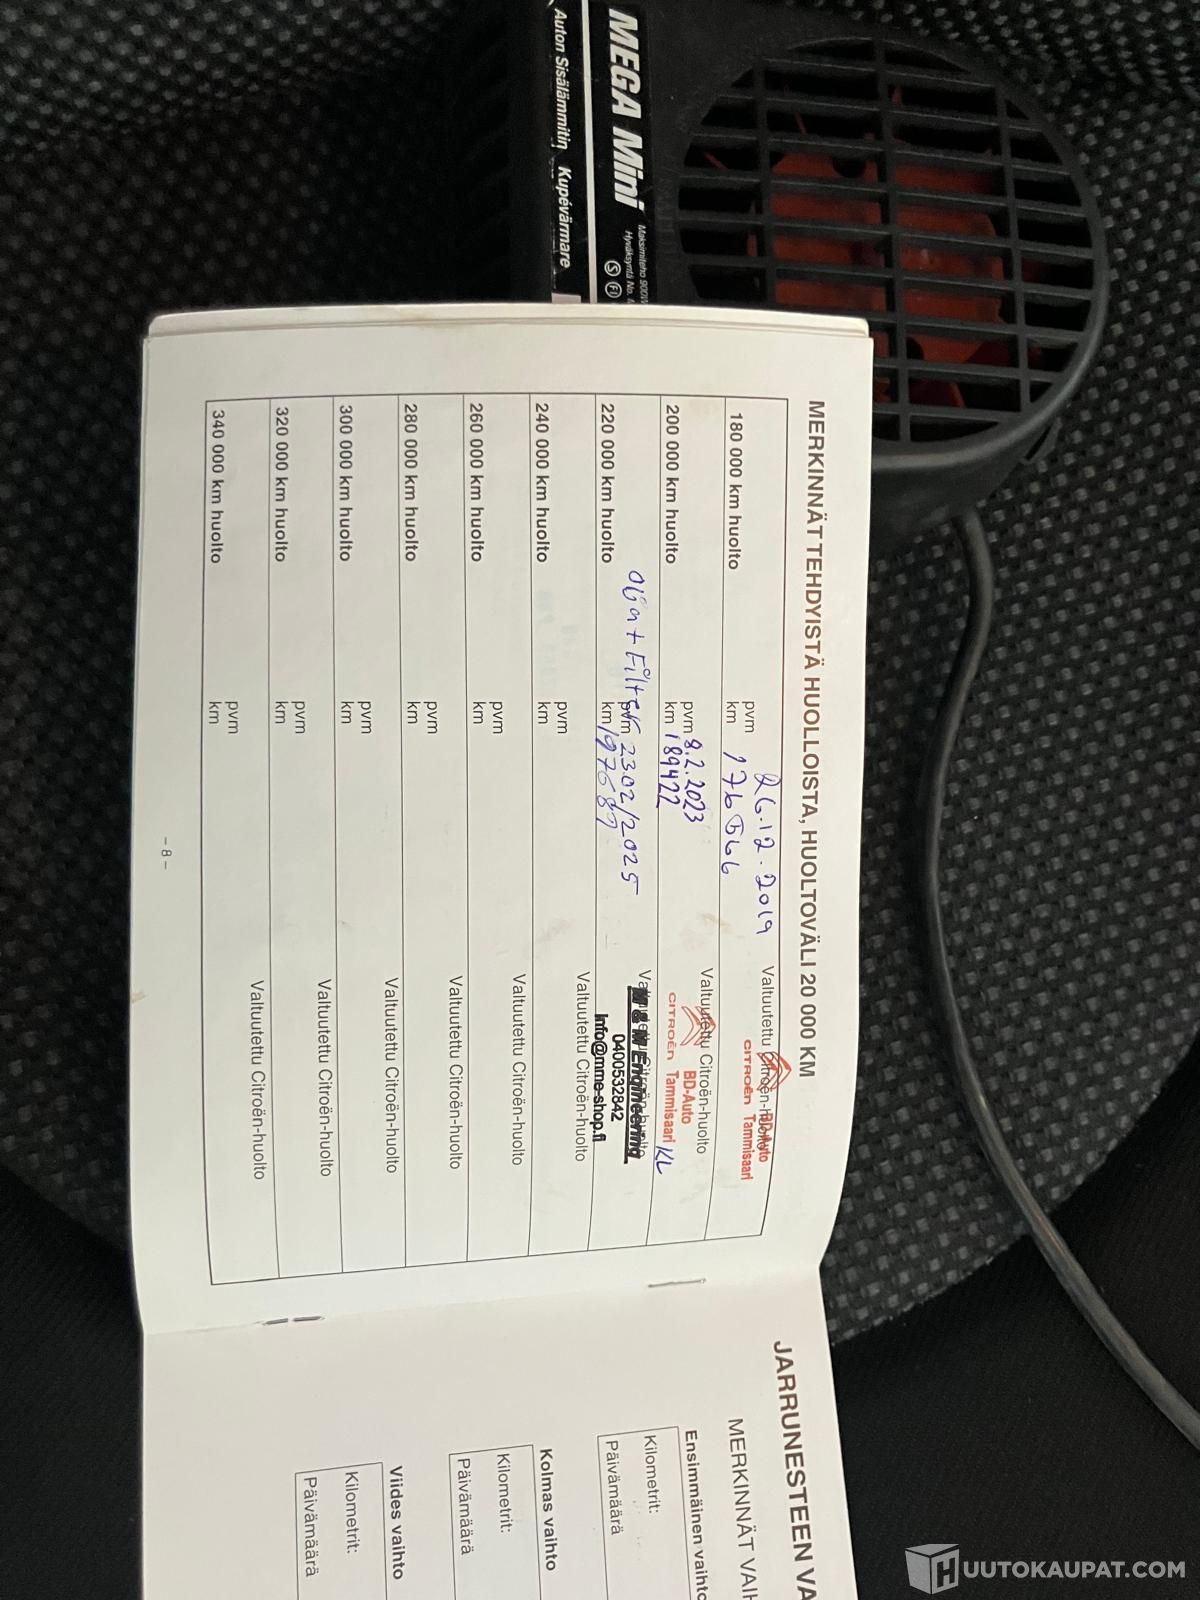 MEGA Mini
Auton Sisälämmitin Kupévärmare
Maksimiteho 900W
Hyväksyntä No.
S FI
MERKINNÄT TEHDYISTÄ HUOLLOISTA, HUOLTOVÄLI 20 000 KM
180 000 km huolto
pvm 26.12.2019
km 176566
Valtuutettu Citroën-huolto
CITROËN BD-Auto
Tammisaari
200 000 km huolto
pvm 8.2.2023
km 189422
Valtuutettu Citroën-huolto
CITROËN BD-Auto
Tammisaari KL
220 000 km huolto
+ Filter
pvm 2302/2025
km 197687
Valtuutettu Citroën-huolto
M & M Engineering
0400532842
Info@mme-shop.fi
240 000 km huolto
pvm
km
Valtuutettu Citroën-huolto
260 000 km huolto
pvm
km
Valtuutettu Citroën-huolto
280 000 km huolto
pvm
km
Valtuutettu Citroën-huolto
300 000 km huolto
pvm
km
Valtuutettu Citroën-huolto
320 000 km huolto
pvm
km
Valtuutettu Citroën-huolto
340 000 km huolto
pvm
km
Valtuutettu Citroën-huolto
– 8 –
JARRUNESTEEN VA
MERKINNÄT VAIH
Ensimmäinen vaihto
Kilometrit:
Päivämäärä
Kolmas vaihto
Kilometrit:
Päivämäärä
Viides vaihto
Kilometrit:
Päivämäärä
HUUTOKAUPAT.COM